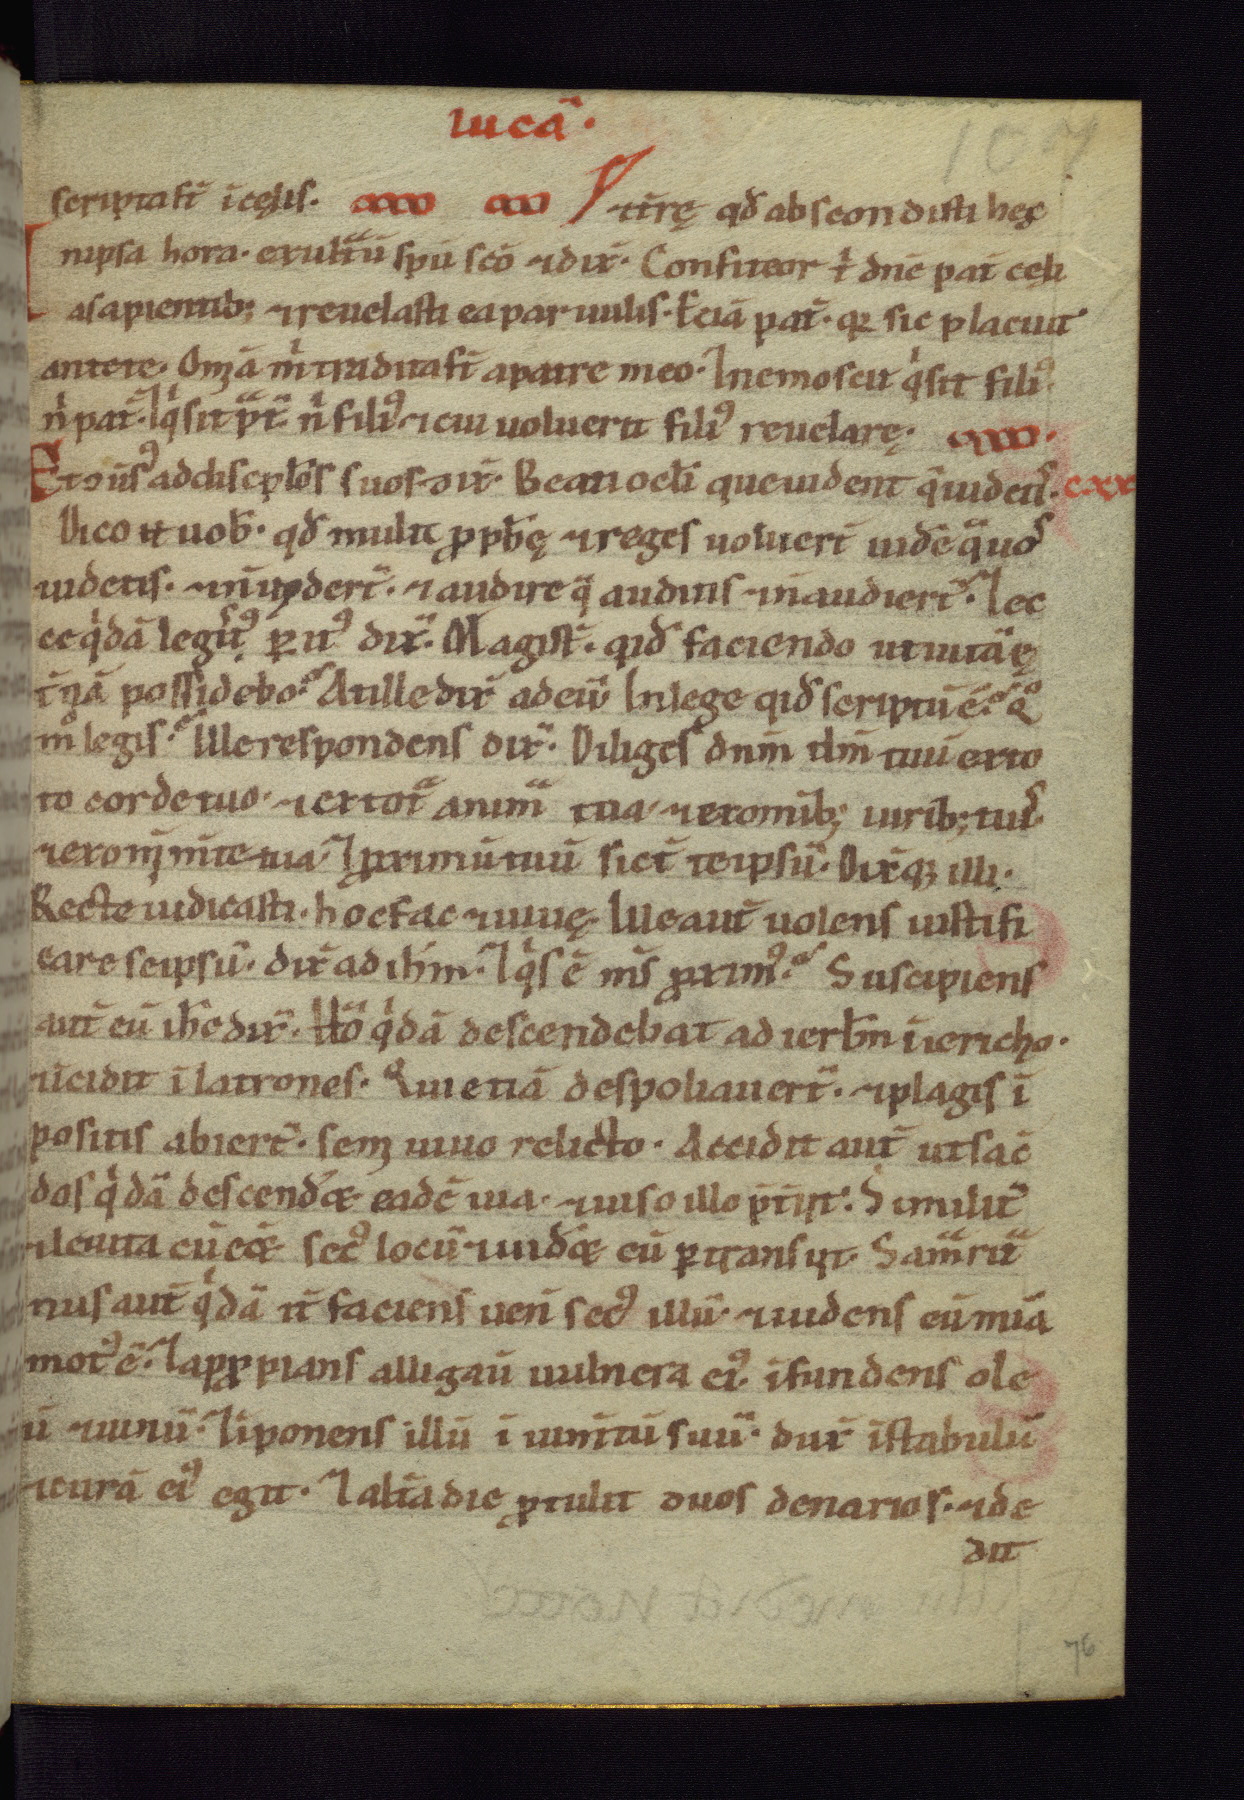 lucā·
scripta sr̄ ī cęlis·
⁊ tr̄rę qd̄ abscondisti hęc
In ipsa hora· exultau̅ sp̅u sc̅o ⁊ dix̅· Confiteor t̅ dn̅e pat̅ cęli
a sapientib; ⁊ reuelasti ea paruulis· Eciā pat̅· q̅ sic placuit
ante te· Om̅ā m̅ tradita st̅ a patre meo· ⁊ nemo scit q̅ sit filiꝰ
n̅ pat̅· ⁊ q̅ sit pr̅t̅ n̅ filiꝰ ⁊ cui uoluerit filiꝰ reuelarę·
Et ↄu̅sꝰ ad discip̅lo̅s suos dix̅· Beati oc̅li que uident q̅ uidet̅s· cxx
Dico n̅ uob̅· qd̅ multi ꝓph̅ę ⁊ reges uoluer̅t uide̅ q̅ uos
uidetis· ⁊ n̅ uider̅t· ⁊ audire q̅ auditis ⁊ n̅ audier̅t· ⁊ ec
ce q̅dā legis̅ꝑitꝰ dix̅· Magist̅· qid̅ faciendo ut uitā ę
t̅nā possidebo· At ille dix̅ ad eū· In lege qid̅ scriptū ē· Q̊
m̊ legis· Ille respondens dix̅· Diliges dn̅m d̅m tuū ex to
to corde tuo· ⁊ ex tot̅ anim̅ tua ⁊ ex omīb; uirib; tuis̅
⁊ ex om̅ m̅te tua· ⁊ ꝓximū tuū sict̅ te ipsū· Dix̅q; illi·
Recte iudicasti· hoc fac ⁊ uiuę· Ille aut̅ uolens iustifi
care se ipsū· dix̅ ad ih̅m· ⁊ q̅s ē m̅s ꝓximꝰ· Suscipiens
aut̅ eū ih̅c dix̅· Ho̅ q̅dā descendebat ab ierl̅m ī iericho·
⁊ īcidit ī latrones· Qui etiā despoliauer̅t· ⁊ plagis ī
positis abier̅t· semꝫ uiuo relicto· Accidit aut̅ ut sac̅
dos q̅dā descend̅et̅ eadē uia· ⁊ uiso illo p̅t̅iit· Similit̅
⁊ leuita cū cēt̅ sec̅ꝰ locū ⁊ uid̅et̅ eū ꝑtransiit· Sam̅rit̅
nus aut̅ q̅dā it̅ faciens uen̅ sec̅ꝰ illū· ⁊ uidens eū mi̅a
motꝰ ē· ⁊ apꝓpians alligau̅ uulnera eiꝰ īfundens ole
ū ⁊ uinū· ⁊ īponens illū ī ium̅tū suū· dux̅ ī stabulū
⁊ curā eiꝰ egit· ⁊ alt̅a die ꝓtulit duos denarios· ⁊ de
dit
76